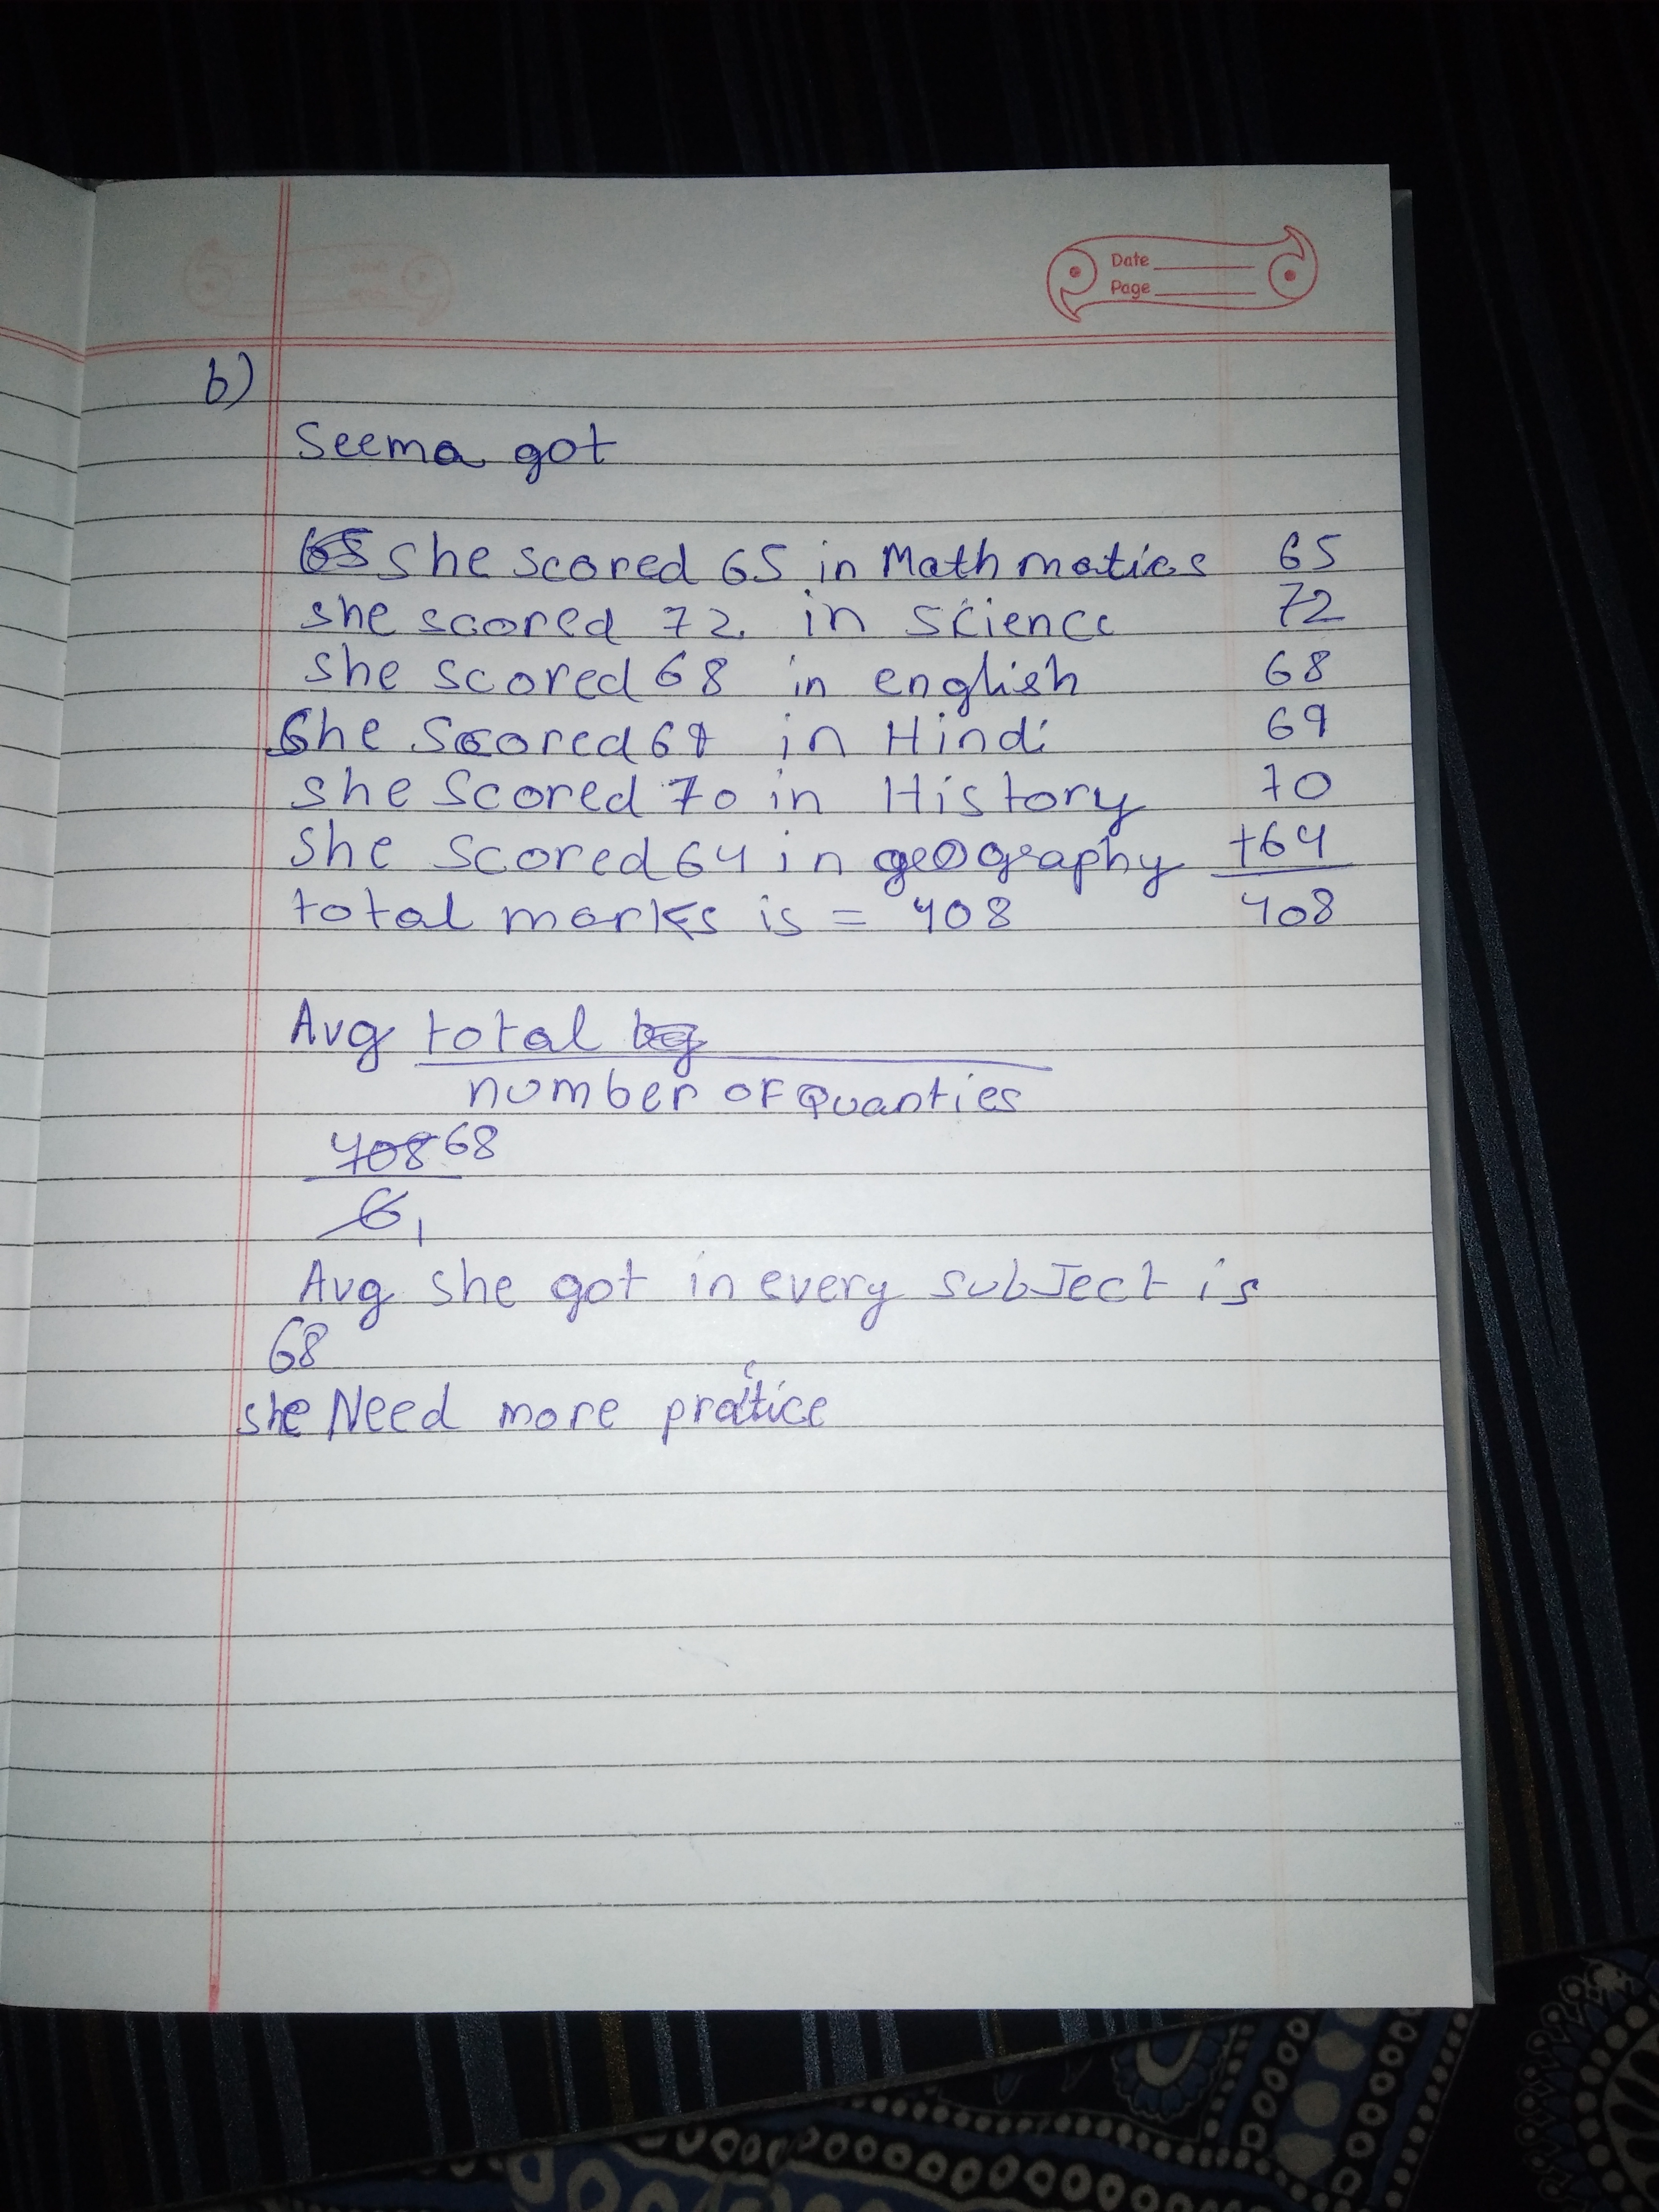 Date
Page
b)
Seema got
She scored 65 in Mathmatics 65
she scored 72 in science 72
she scored 68 in english 68
She Scored 69 in Hindi 69
she scored 70 in History 70
she scored 64 in geography +64
total marks is = 408 408
Avg total
number of Quanties
408 68
6 1
Avg she got in every subJect is
68
she Need more practice